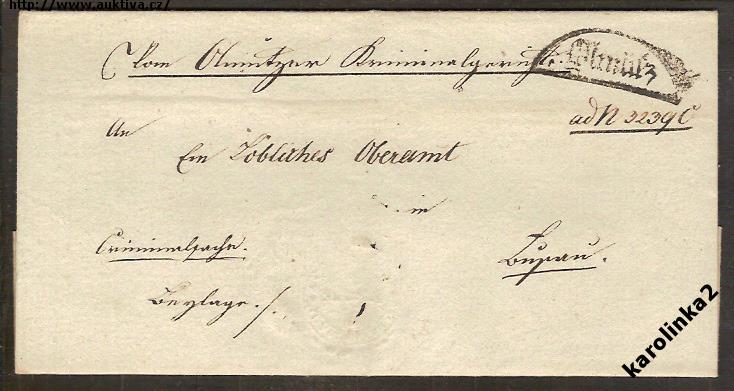 http://www.auktiva.cz/
Vom Olmützer Kriminalgerichte.
Olmütz
ad N 3239 C
An
Ein Löbliches Oberamt
in
Criminalsache.
Beylage ./.
karolinka2